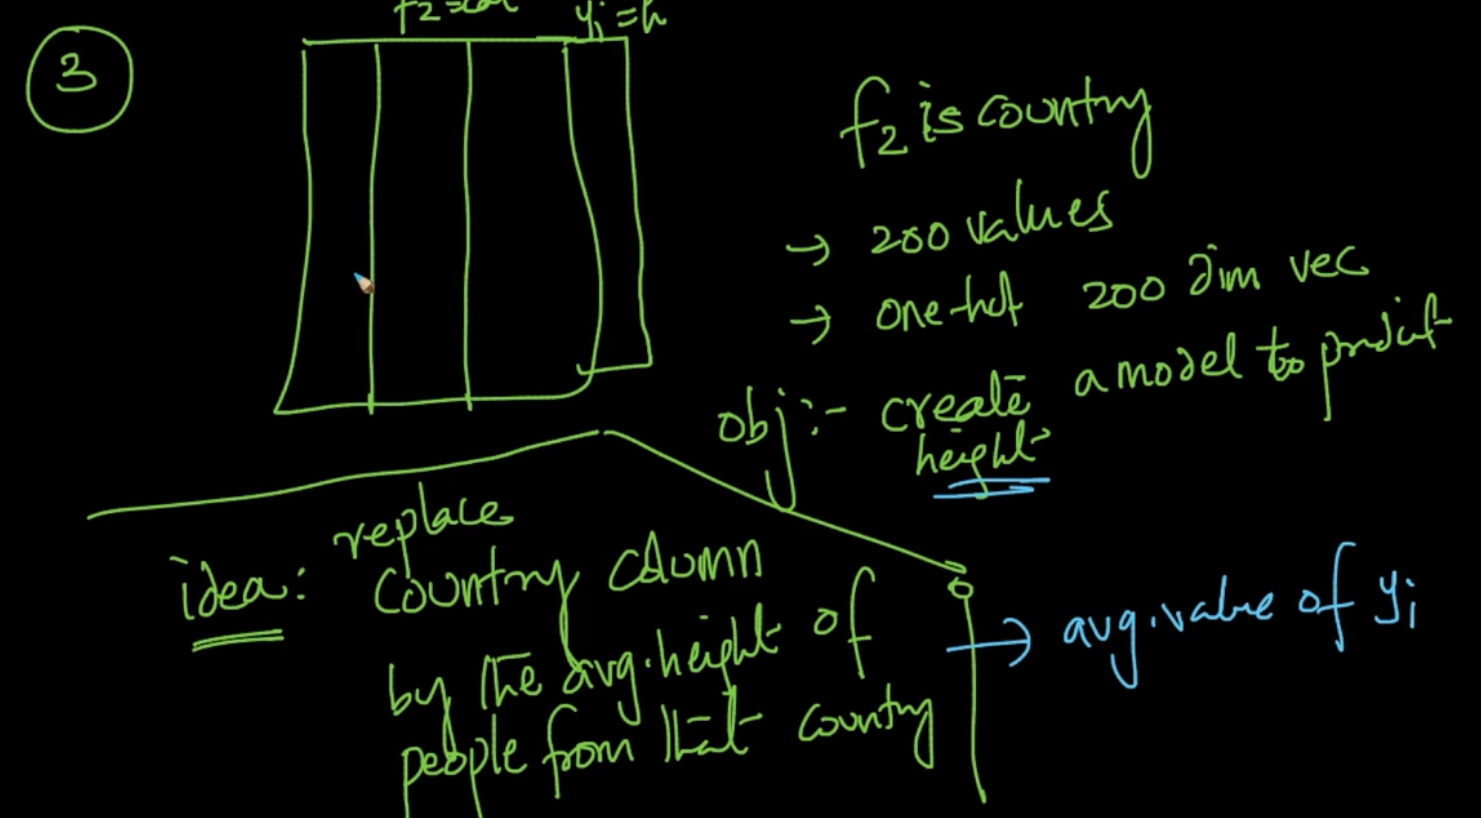 3
yᵢ = h
f₂ is country
→ 200 values
→ one-hot 200 dim vec
obj:- create a model to predict
height
idea: replace
country column
by the avg. height of
people from that country
→ avg. value of yᵢ